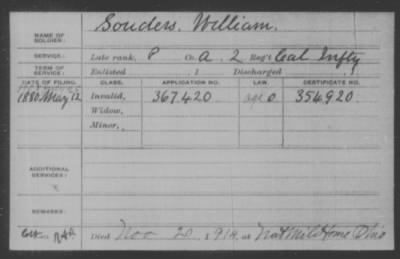 NAME OF SOLDIER: Souders, William.
SERVICE: Late rank, P Co. A, 2 Reg't Cal Infty
TERM OF SERVICE: Enlisted , 1 Discharged , 1
DATE OF FILING. CLASS. APPLICATION NO. LAW. CERTIFICATE NO.
1880 May 12 Invalid, 367.420 354.920
Widow,
Minor,
ADDITIONAL SERVICES:
REMARKS:
Died Nov 20, 1914, at Natl Mil Home Ohio